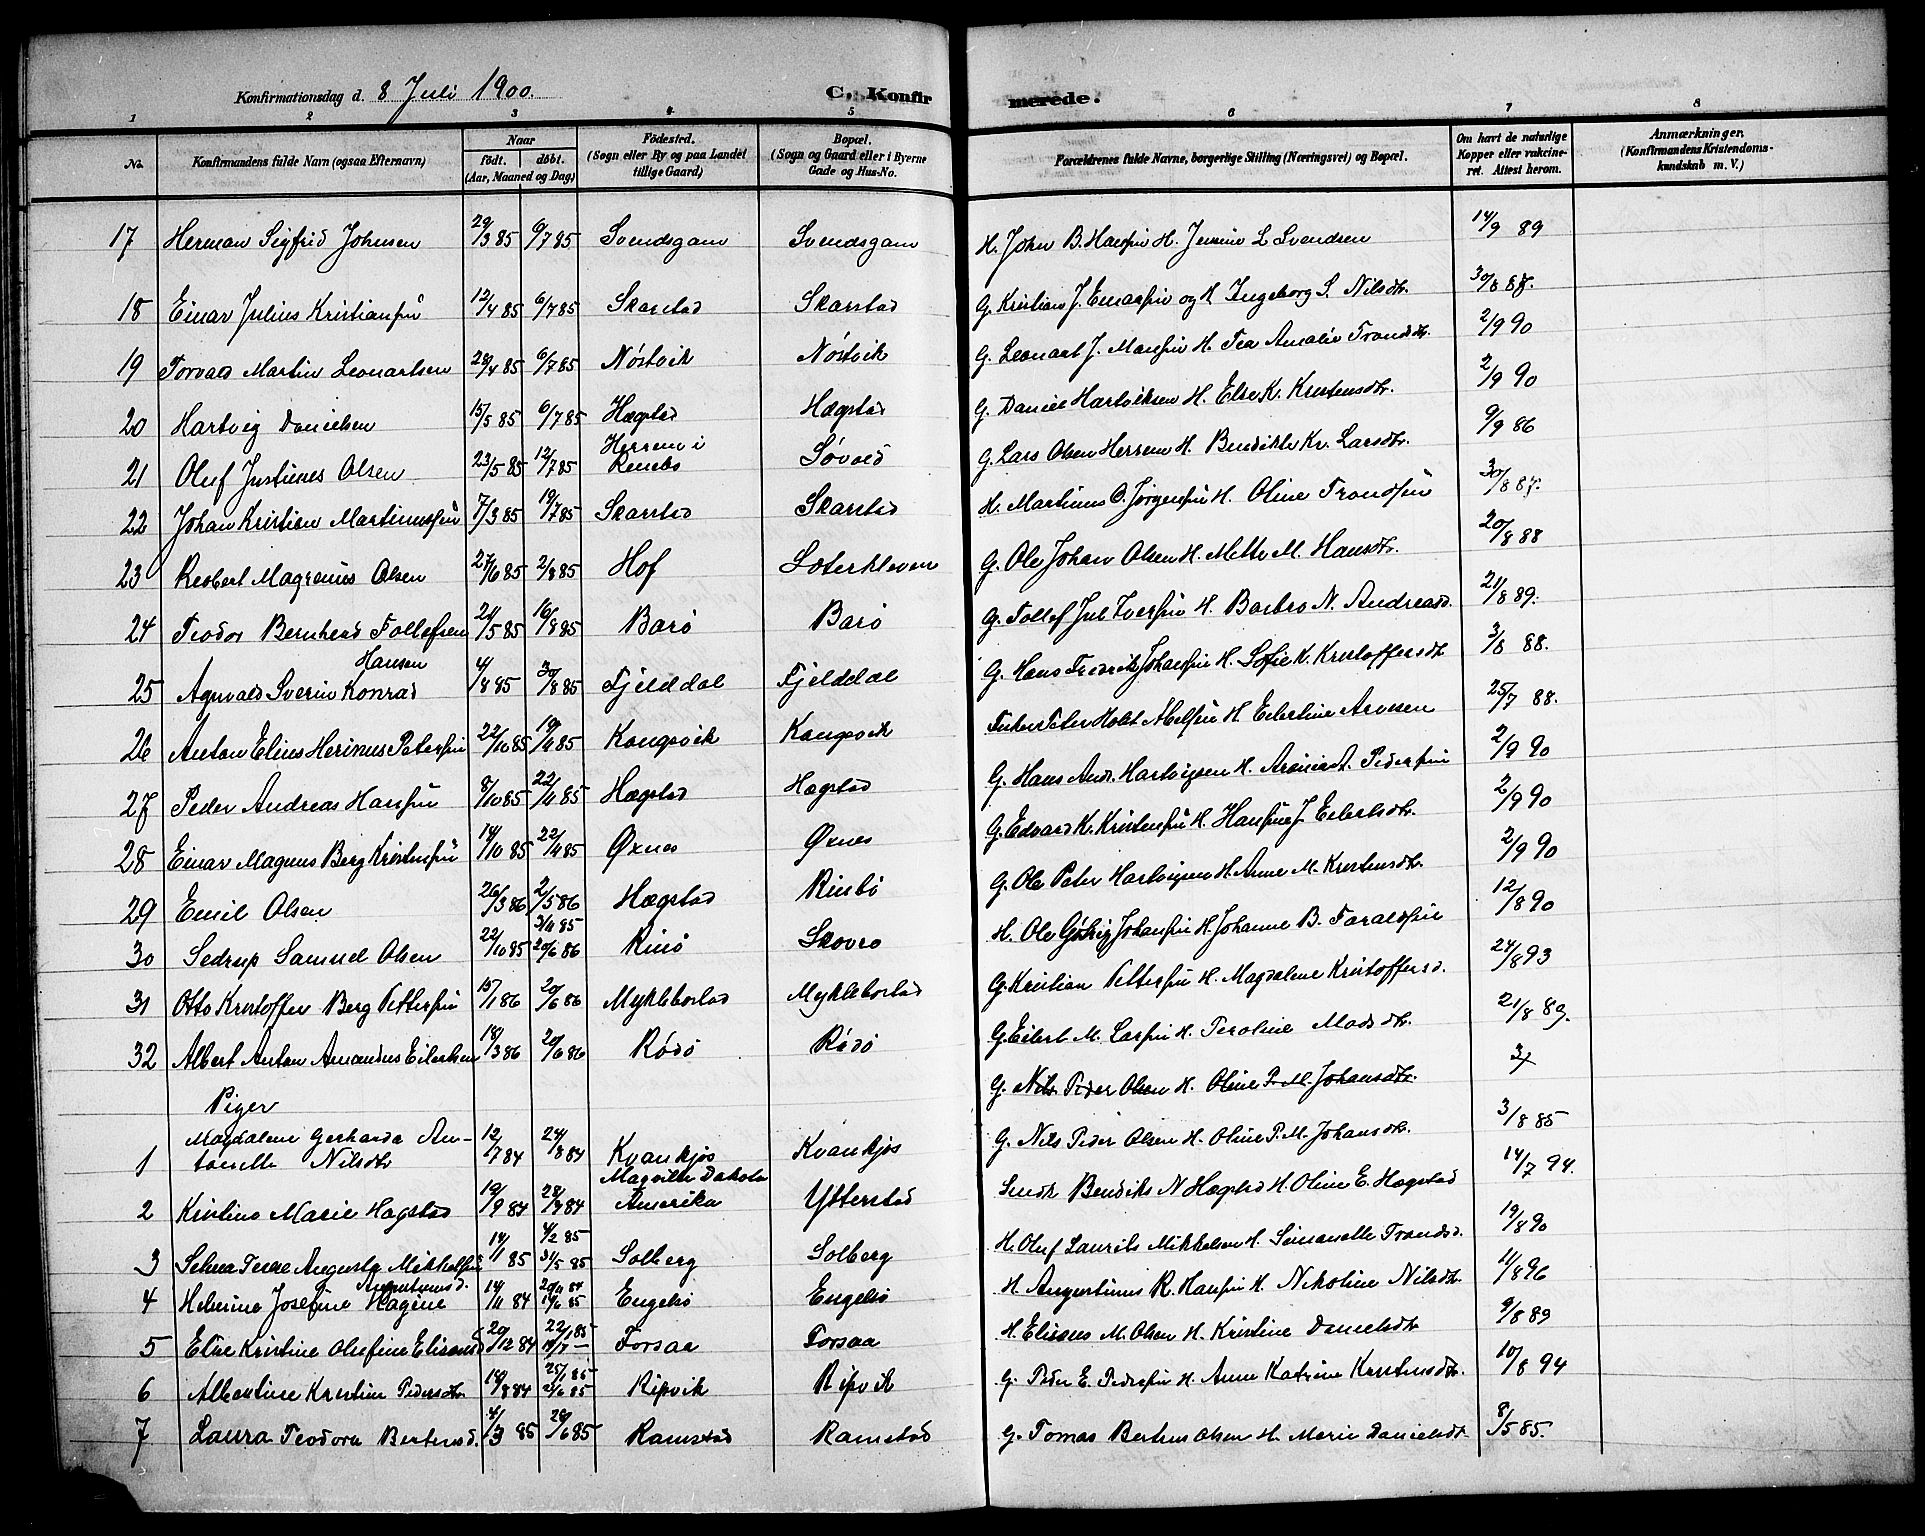 Konfirmationsdag d. 8 Juli 1900. C. Konfirmerede.
1 2 3 4 5 6 7 8
No. Konfirmandens fulde Navn (ogsaa Efternavn) Naar født. døbt. (Aar, Maaned og Dag) Fødested. (Sogn eller By og paa Landet tillige Gaard) Bopæl. (Sogn og Gaard eller i Byerne Gade og Hus-No. Forældrenes fulde Navne, borgerlige Stilling (Næringsvei) og Bopæl. Om havt de naturlige Kopper eller vakcineret. Attest herom. Anmærkninger. (Konfirmandens Kristendomskundskab m. V.)
17 Herman Sigfrid Johnsen 29/3 85 6/7 85 Svendsgam Svendsgam H. John B. Hansen H. Jensine L Svendsen 14/9 89
18 Einar Julius Kristiansen 12/4 85 6/7 85 Skarstad Skarstad G. Kristian J. Einarsen og H. Ingeborg S. Nilsdtr. 30/8 87.
19 Torvald Martin Leonartsen 28/4 85 6/7 85 Nóstvik Nóstvik G. Leonart J. Hansen H. Tea Amalie Trondsdtr. 2/9 90
20 Hartvig Danielsen 15/5 85 6/7 85 Hægstad Hægstad G. Daniel Hartviksen H. Else K. Kristensdtr. 2/9 90
21 Oluf Justines Olsen 23/5 85 12/7 85 Herrem i Rennebo Søvold G. Lars Olsen Herrem H. Bendikte Kr. Larsdtr. 9/9 86
22 Johan Kristian Martinussen 7/3 85 19/7 85 Skarstad Skarstad H. Martinus O. Jørgensen H. Oline Trondsen 30/8 87.
23 Robert Magnus Olsen 27/6 85 2/8 85 Hof Soterkleven G. Ole Johan Olsen H. Mette M. Hansdtr. 20/8 88
24 Teodor Bernhard Tollefsen 21/5 85 16/8 85 Barö Barö G. Tollef Jul Iversen H. Barbro N. Andreasd. 21/8 89.
25 Agnvald Sverin Konrad Hansen 4/8 85 30/8 85 Fjelddal Fjelddal G. Hans Fredrik Johansen H. Sofie K. Kristoffersdtr 3/8 88.
26 Anton Elius Herinus Petersen 22/10 85 19/11 85 Kongsvik Kongsvik Peter Holst Abelsen H. Eilertine Arnesen 25/7 88.
27 Peder Andreas Hansen 8/10 85 22/11 85 Hægstad Hægstad G. Hans Andr. Hartvigsen H. A. Pedersen 2/9 90
28 Einar Magnus Berg Kristensen 14/10 85 22/11 85 Øxnes Øxnes G. Edvard K. Kristensen H. Hansine J Eilertsdtr. 2/9 90
29 Emil Olsen 26/3 86 2/5 86 Hægstad Rinbö G. Ole Peter Hartvigsen H. Anne M. Kristensdtr. 2/9 90
30 Sedrup Samuel Olsen 22/10 85 3/11 85 20/6 86 Rinö Skovro H. Ole Johansen H. Johanne B. Taraldsen 12/8 90
31 Otto Kristoffer Berg Pettersen 15/1 86 20/6 86 Myklebostad Myklebostad G. Kristian Pettersen H. Magdalene Kristoffersd. 24/8 93
32 Albert Anton Amandus Eilertsen 18/3 86 20/6 86 Rödö Rödö G. Eilert M. Larsen H. Peroline Madsdtr. 21/8 89.
G. Nils Peder Olsen H. Oline P. M. Johansdtr. 3/
Piger
1 Magdalene Gerharda Antonette Nilsdtr 12/7 84 24/8 84 Kvankjos Kvankjos G. Nils Peder Olsen H. Oline P. M. Johansdtr. 3/8 85
2 Kirstine Marie Hagstad 19/9 84 28/9 84 Magville Dakota Amerika Ytterstad Smedk Bendiks N Hægstad H. Oline E. Hægstad 14/7 94.
3 Selma Augusta Mikkelsen 14/1 85 4/2 85 31/5 85 Solberg Solberg H. Oluf Laurits Mikkelsen H. Simonelle Trondsd. 19/8 90
4 Helmine Josefine Hagine Augustinusd. 14/11 84 20/11 84 14/6 85 Engelsö Engelsö H. Augustinus R. Hansen H. Nikoline Nilsdtr 11/8 96
5 Else Kristine Olufine Eliseusd 20/12 84 22/1 85 19/7 — Forsaa Forsaa H. Eliseus M. Olsen H. Kristine Danielsdtr 9/8 89
6 Albertine Kristine Pedersdtr 19/8 84 25/1 85 21/6 85 Ripvik Ripvik G. Peder E. Pedersen H. Anne Katrine Kristensdtr. 10/8 94
7 Laura Teodora Bertensd. 4/3 85 28/6 85 Ramstad Ramstad G. Tomas Bertens Olsen H. Marie Danielsdtr. 8/5 85.